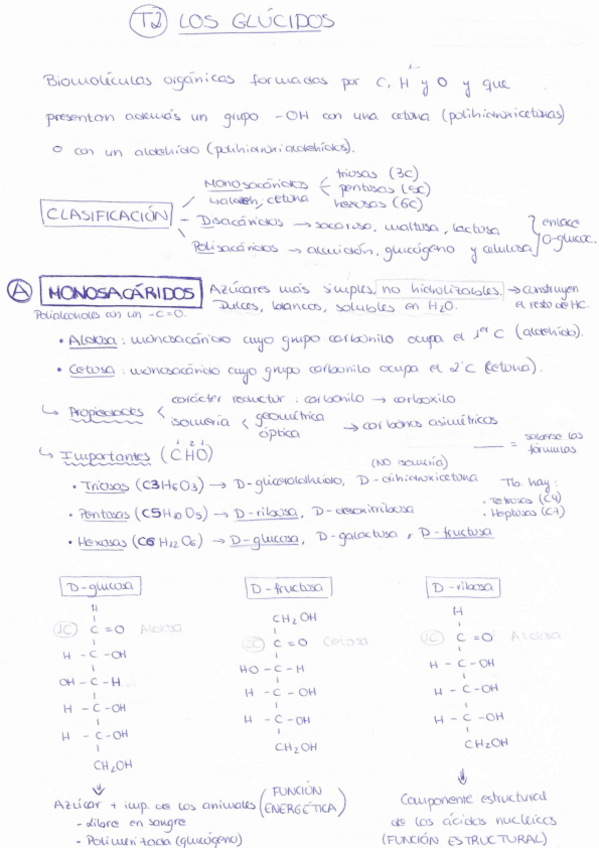 T2 LOS GLÚCIDOS
Biomoléculas orgánicas formadas por C, H y O y que
presentan además un grupo -OH con una cetona (polihidroxicetonas)
o con un aldehído (polihidroxialdehídos).
CLASIFICACIÓN
Monosacáridos < triosas (3C) pentosas (5C) hexosas (6C)
cetona
Disacáridos → sacarosa, maltosa, lactosa
Polisacáridos → almidón, glucógeno y celulosa
enlace
O-glucoc.
A MONOSACÁRIDOS Azúcares más simples, no hidrolizables. → construyen
el resto de HC.
Dulces, blancos, solubles en H₂O.
Polialcoholes con un -C=O.
• Aldosa: monosacárido cuyo grupo carbonilo ocupa el 1er C (aldehído).
• Cetosa: monosacárido cuyo grupo carbonilo ocupa el 2º C (cetona).
↳ Propiedades < carácter reductor: carbonilo → carboxilo
isomería < geométrica
óptica → carbonos asimétricos
↳ Importantes (CHO)
1 2 1
___ = saberse las
fórmulas
(NO isomería)
• Triosas (C3H6O3) → D-gliceraldehído, D-dihidroxicetona
Tb. hay:
• Tetrosas (C4)
• Heptosas (C7)
• Pentosas (C5H10O5) → D-ribosa, D-desoxirribosa
• Hexosas (C6H12O6) → D-glucosa, D-galactosa, D-fructosa
D-glucosa
H
1C C=O Aldosa
H-C-OH
OH-C-H
H-C-OH
H-C-OH
CH2OH
Azúcar + imp. de los animales (FUNCIÓN ENERGÉTICA)
- Libre en sangre
- Polimerizada (glucógeno)
D-fructosa
CH2OH
2C C=O Cetosa
HO-C-H
H-C-OH
H-C-OH
CH2OH
D-ribosa
H
1C C=O Aldosa
H-C-OH
H-C-OH
H-C-OH
CH2OH
Componente estructural
de los ácidos nucleicos
(FUNCIÓN ESTRUCTURAL)